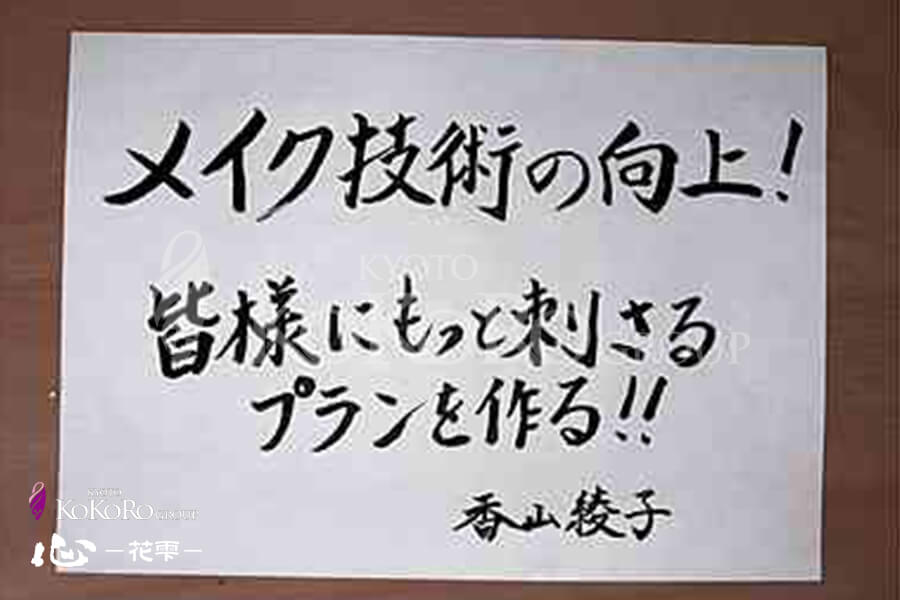 メイク技術の向上!
皆様にもっと刺さる
プランを作る!!
香山綾子
KYOTO
KOKORO GROUP
心 ―花雫―